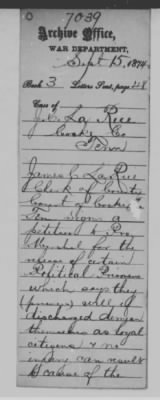 7039
Archive Office,
WAR DEPARTMENT,
Sept 15, 1874
Book 3 Letters Sent, page 428
Case of
J. C. La Rue
Cocke Co
Tenn
James C La Rue
Clerk of County
Court of Cocke Co
Tenn signs a
petition to Pro
Marshal for the
release of certain
Political Prisoners
which says they
(prisoners) will if
discharged demean
themselves as loyal
citizens & no
injury can result
to cause of the